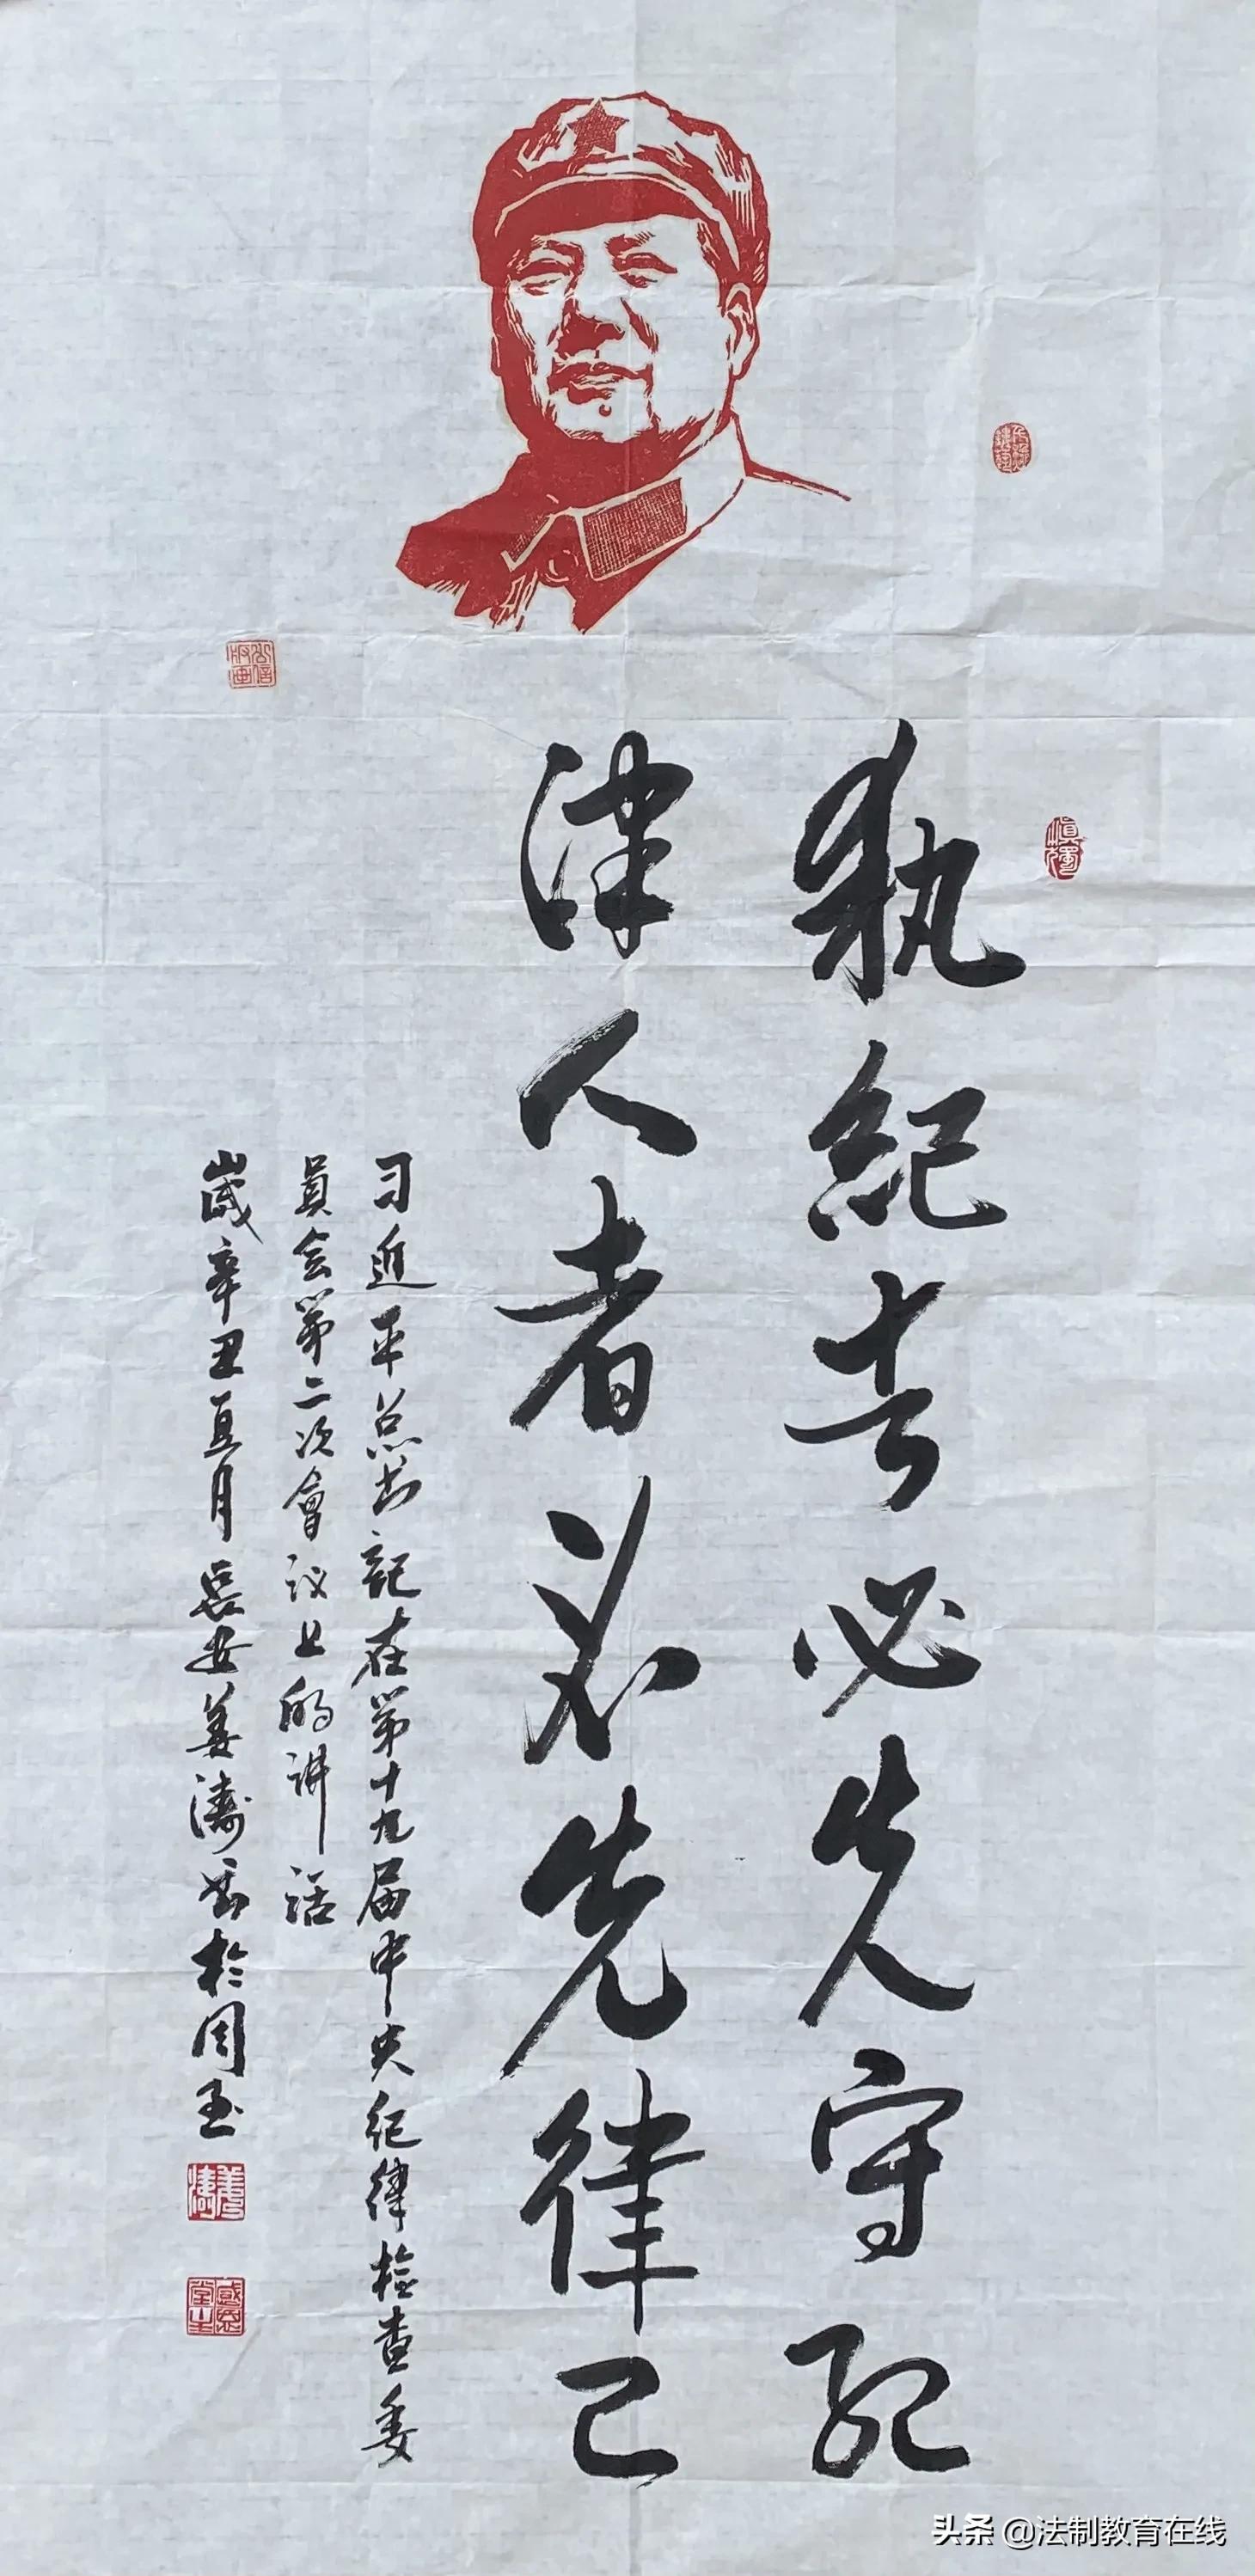 执纪者必先守纪
律人者必先律己
习近平总书記在第十九届中央纪律检查委
員会第二次會议上的讲话
歲辛丑夏月長安姜濤書於同玉
头条 @法制教育在线